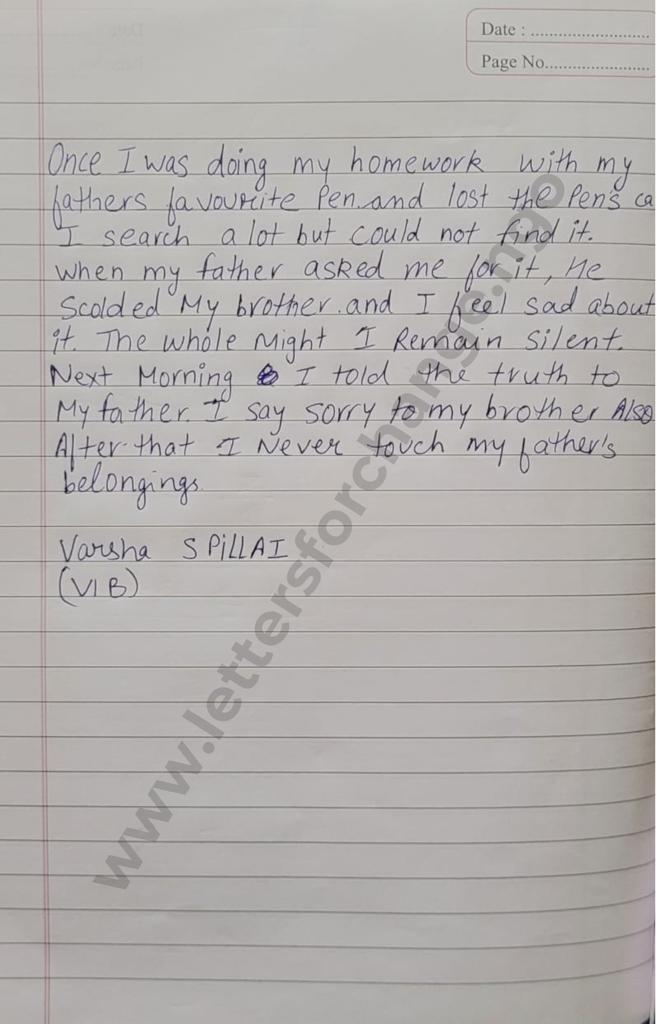 Date : ..........................
Page No.......................
Once I was doing my homework with my
fathers favourite Pen.and lost the Pen's ca
I search a lot but could not find it.
when my father asked me for it, He
Scolded My brother.and I feel sad about
it. The whole Night I Remain Silent.
Next Morning I told the truth to
My father. I say sorry to my brother Also
After that I Never touch my father's
belongings.
Varsha S PillAI
(VI B)
www.lettersforchange.ngo